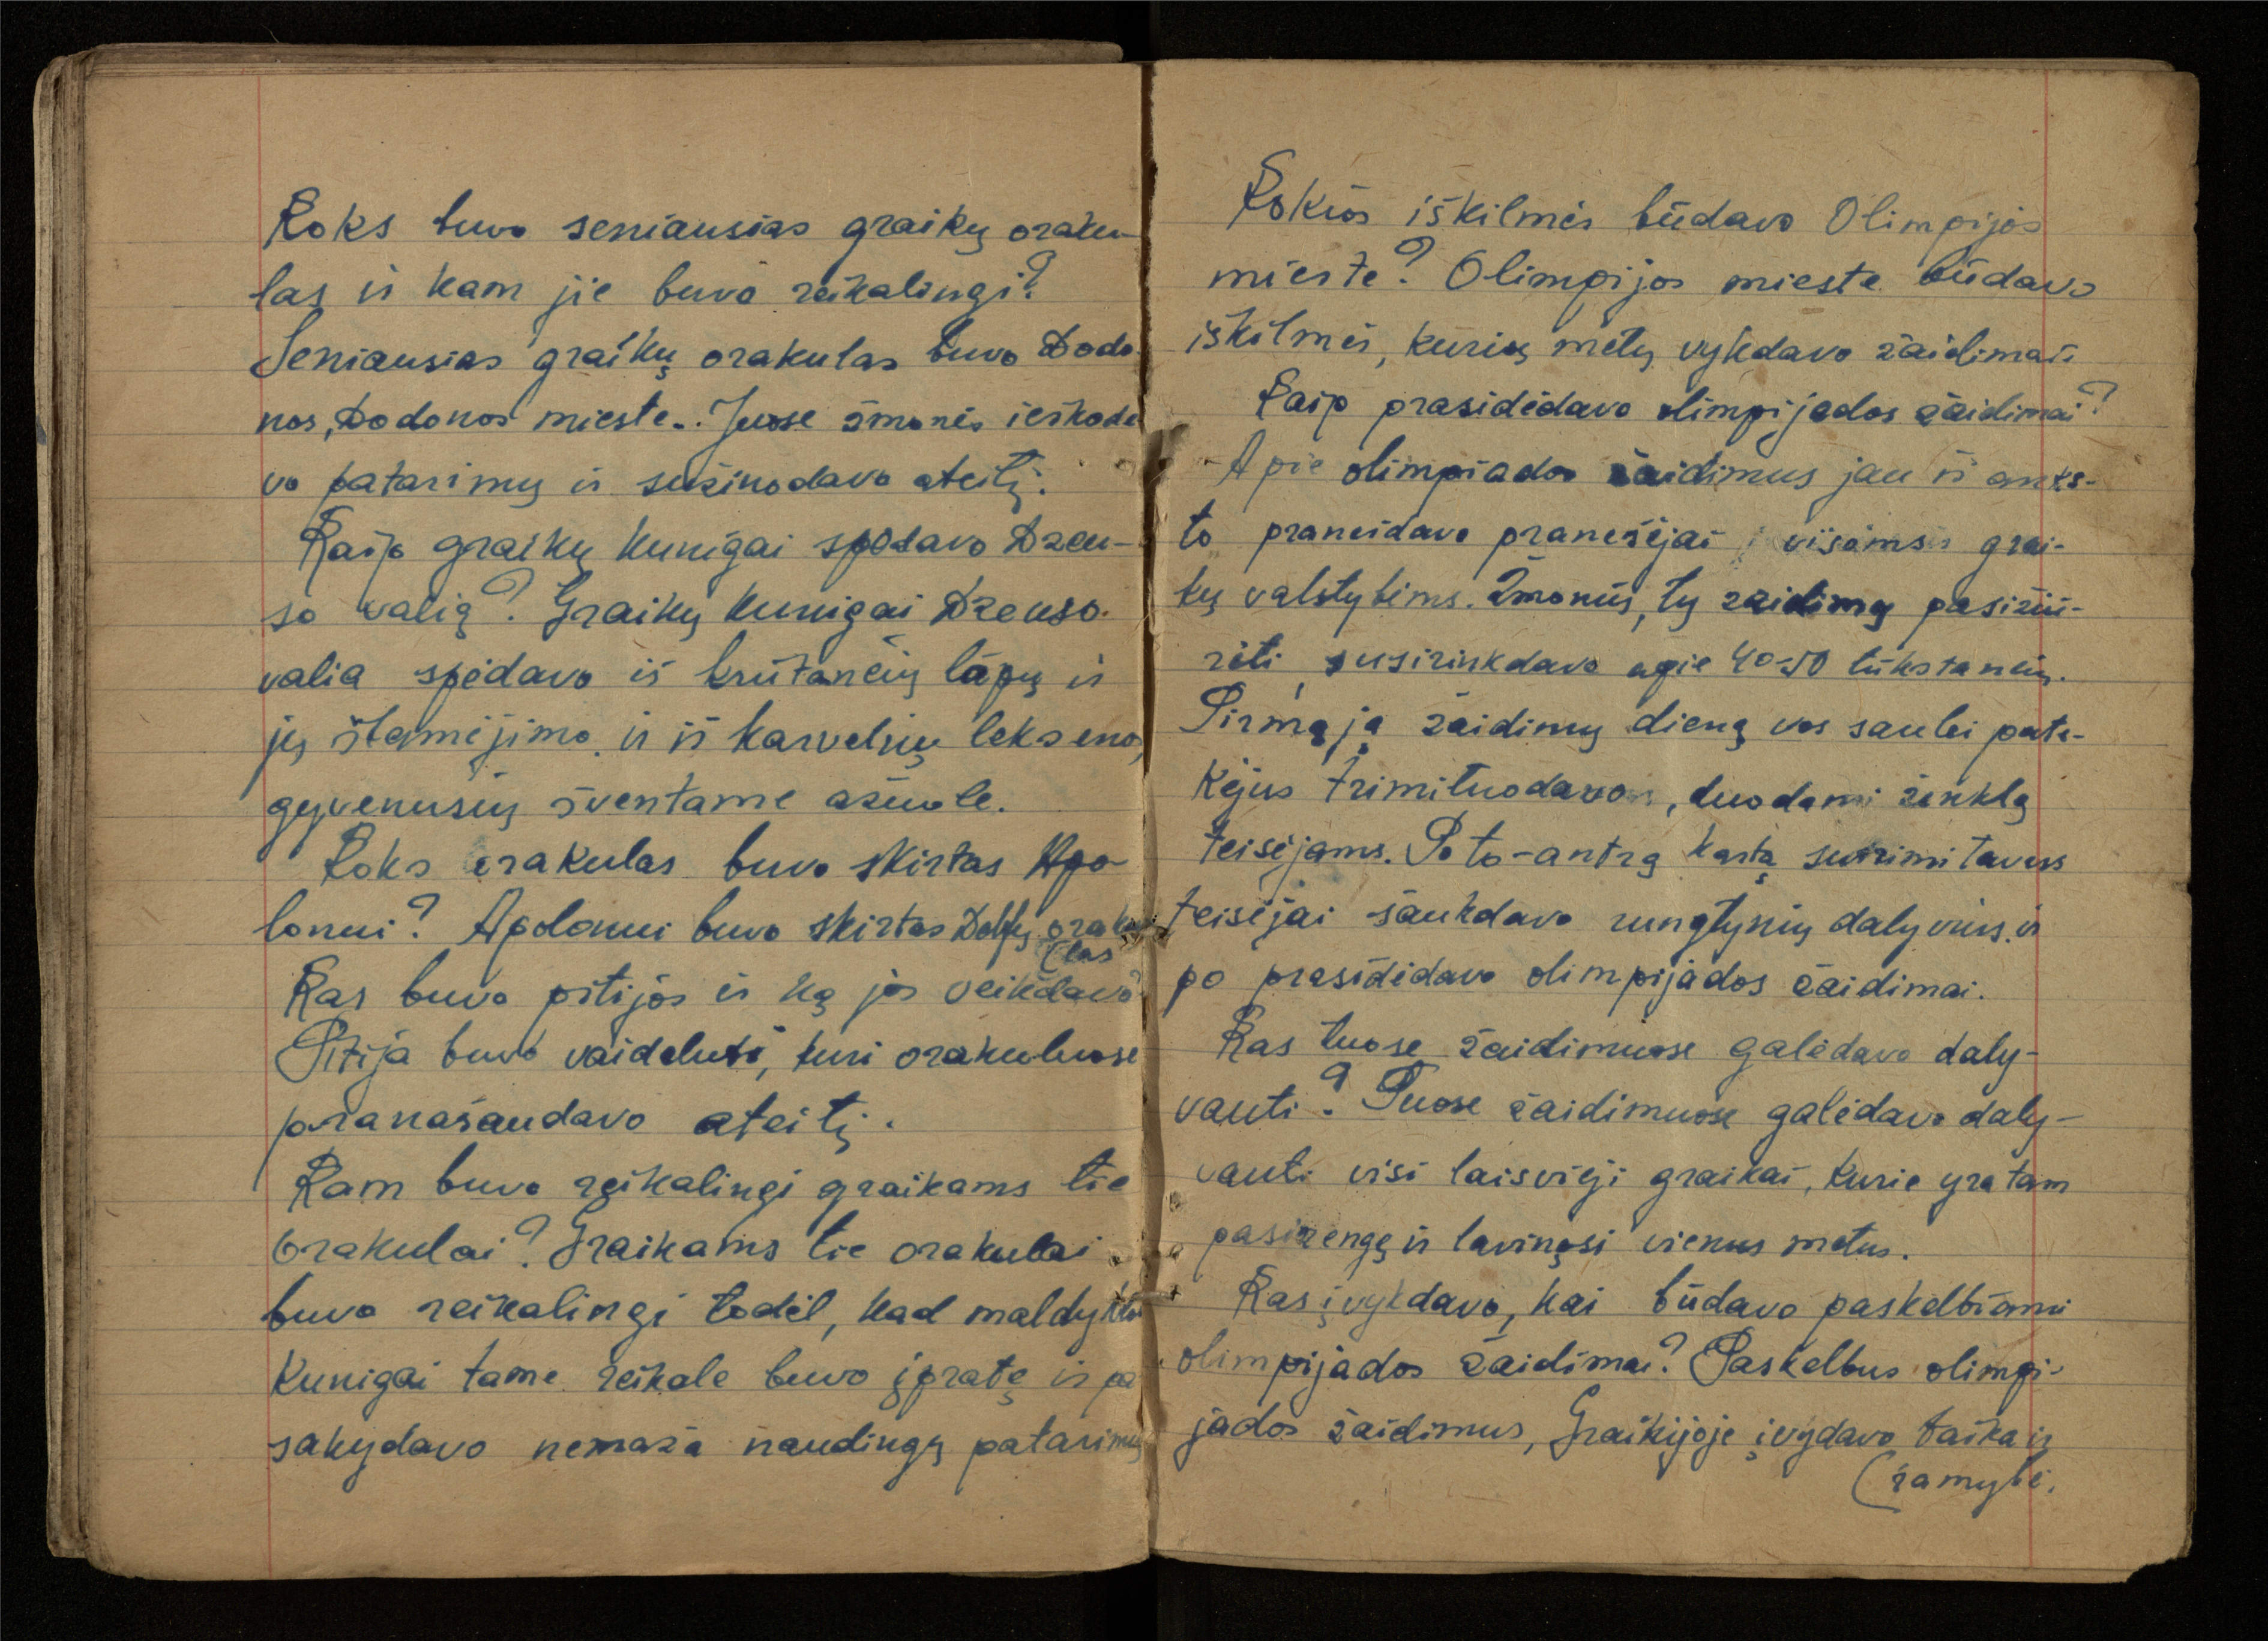 Koks buvo seniausias graikų oraku-
las ir kam jie buvo reikalingi?
Seniausias graikų orakulas buvo Dodo-
nos, Dodonos mieste. Juose žmonės ieškoda
vo patarimų ir sužinodavo ateitį.
Kaip graikų kunigai spėdavo Dzeu-
so valią? Graikų kunigai Dzeuso
valia spėdavo iš krutančių lapų ir
jų šlamėjimo ir iš karvelių leksenos,
gyvenusių šventame ąžuole.
Koks orakulas buvo skirtas Apo-
lonui? Apolonui buvo skirtas Delfų oraku
(las
Kas buvo pitijos ir ką jos veikdavo?
Pitija buvo vaidelutė, kuri orakuluose
pranašaudavo ateitį.
Kam buvo reikalingi graikams tie
orakulai? Graikams tie orakulai
buvo reikalingi todėl, kad maldyklų
kunigai tame reikale buvo įpratę ir pa
sakydavo nemaža naudingų patarimų
Kokios iškilmės būdavo Olimpijos
mieste? Olimpijos mieste būdavo
iškilmės, kurių metų vykdavo žaidimai
Kaip prasidėdavo olimpijados žaidimai?
Apie olimpiados žaidimus jau iš anks-
to pranešdavo pranešėjai visoms grai-
kų valstybėms. Žmonių, tų žaidimų pasižiū-
rėti, susirinkdavo apie 40-50 tūkstančių.
Pirmąją žaidimų dieną vos saulei pate-
kėjus trimituodavo, duodami ženklą
teisėjams. Po to-antrą kartą sutrimitavus
teisėjai šaukdavo rungtynių dalyvius ir
po prasidėdavo olimpijados žaidimai.
Kas tuose žaidimuose galėdavo daly-
vauti? Tuose žaidimuose galėdavo daly-
vauti visi laisvieji graikai, kurie yra tam
pasirengę ir lavinęsi vienus metus.
Kas įvykdavo, kai būdavo paskelbiami
olimpijados žaidimai? Paskelbus olimpi-
jados žaidimus, Graikijoje įvydavo taika ir
(ramybė.